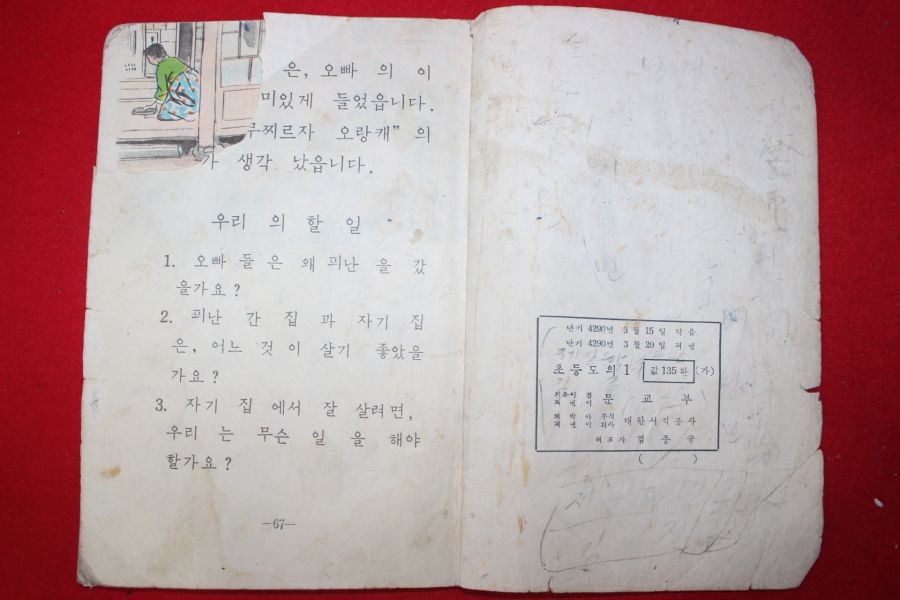 은, 오빠 의 이
미있게 들었읍니다.
무찌르자 오랑캐” 의
가 생각 났읍니다.
우리 의 할 일
1. 오빠 들 은 왜 피난 을 갔
을가요?
2. 피난 간 집 과 자기 집
은, 어느 것 이 살기 좋았을
가요?
3. 자기 집 에서 잘 살려면,
우리 는 무슨 일 을 해야
할가요?
—67—
단기 4290년 3월 15일 박음
단기 4290년 3월 20일 펴냄
초등도의 1 값 135환 (가)
지은이 겸 펴낸이 문교부
펴낸이 주식회사 대한서적공사
대표자 김종
( )